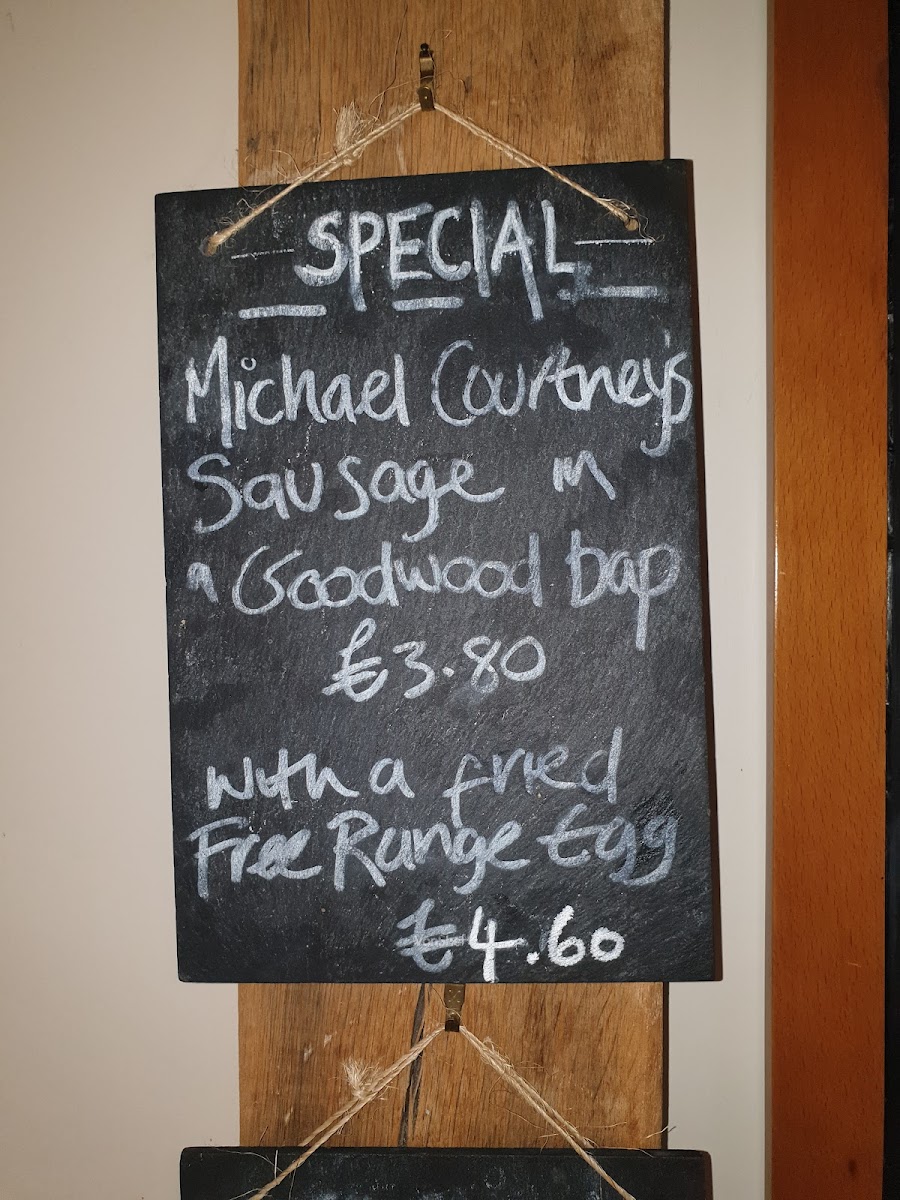 SPECIAL
Michael Courtney's
Sausage in
a Goodwood bap
£3.80
with a fried
Free Range Egg
£4.60